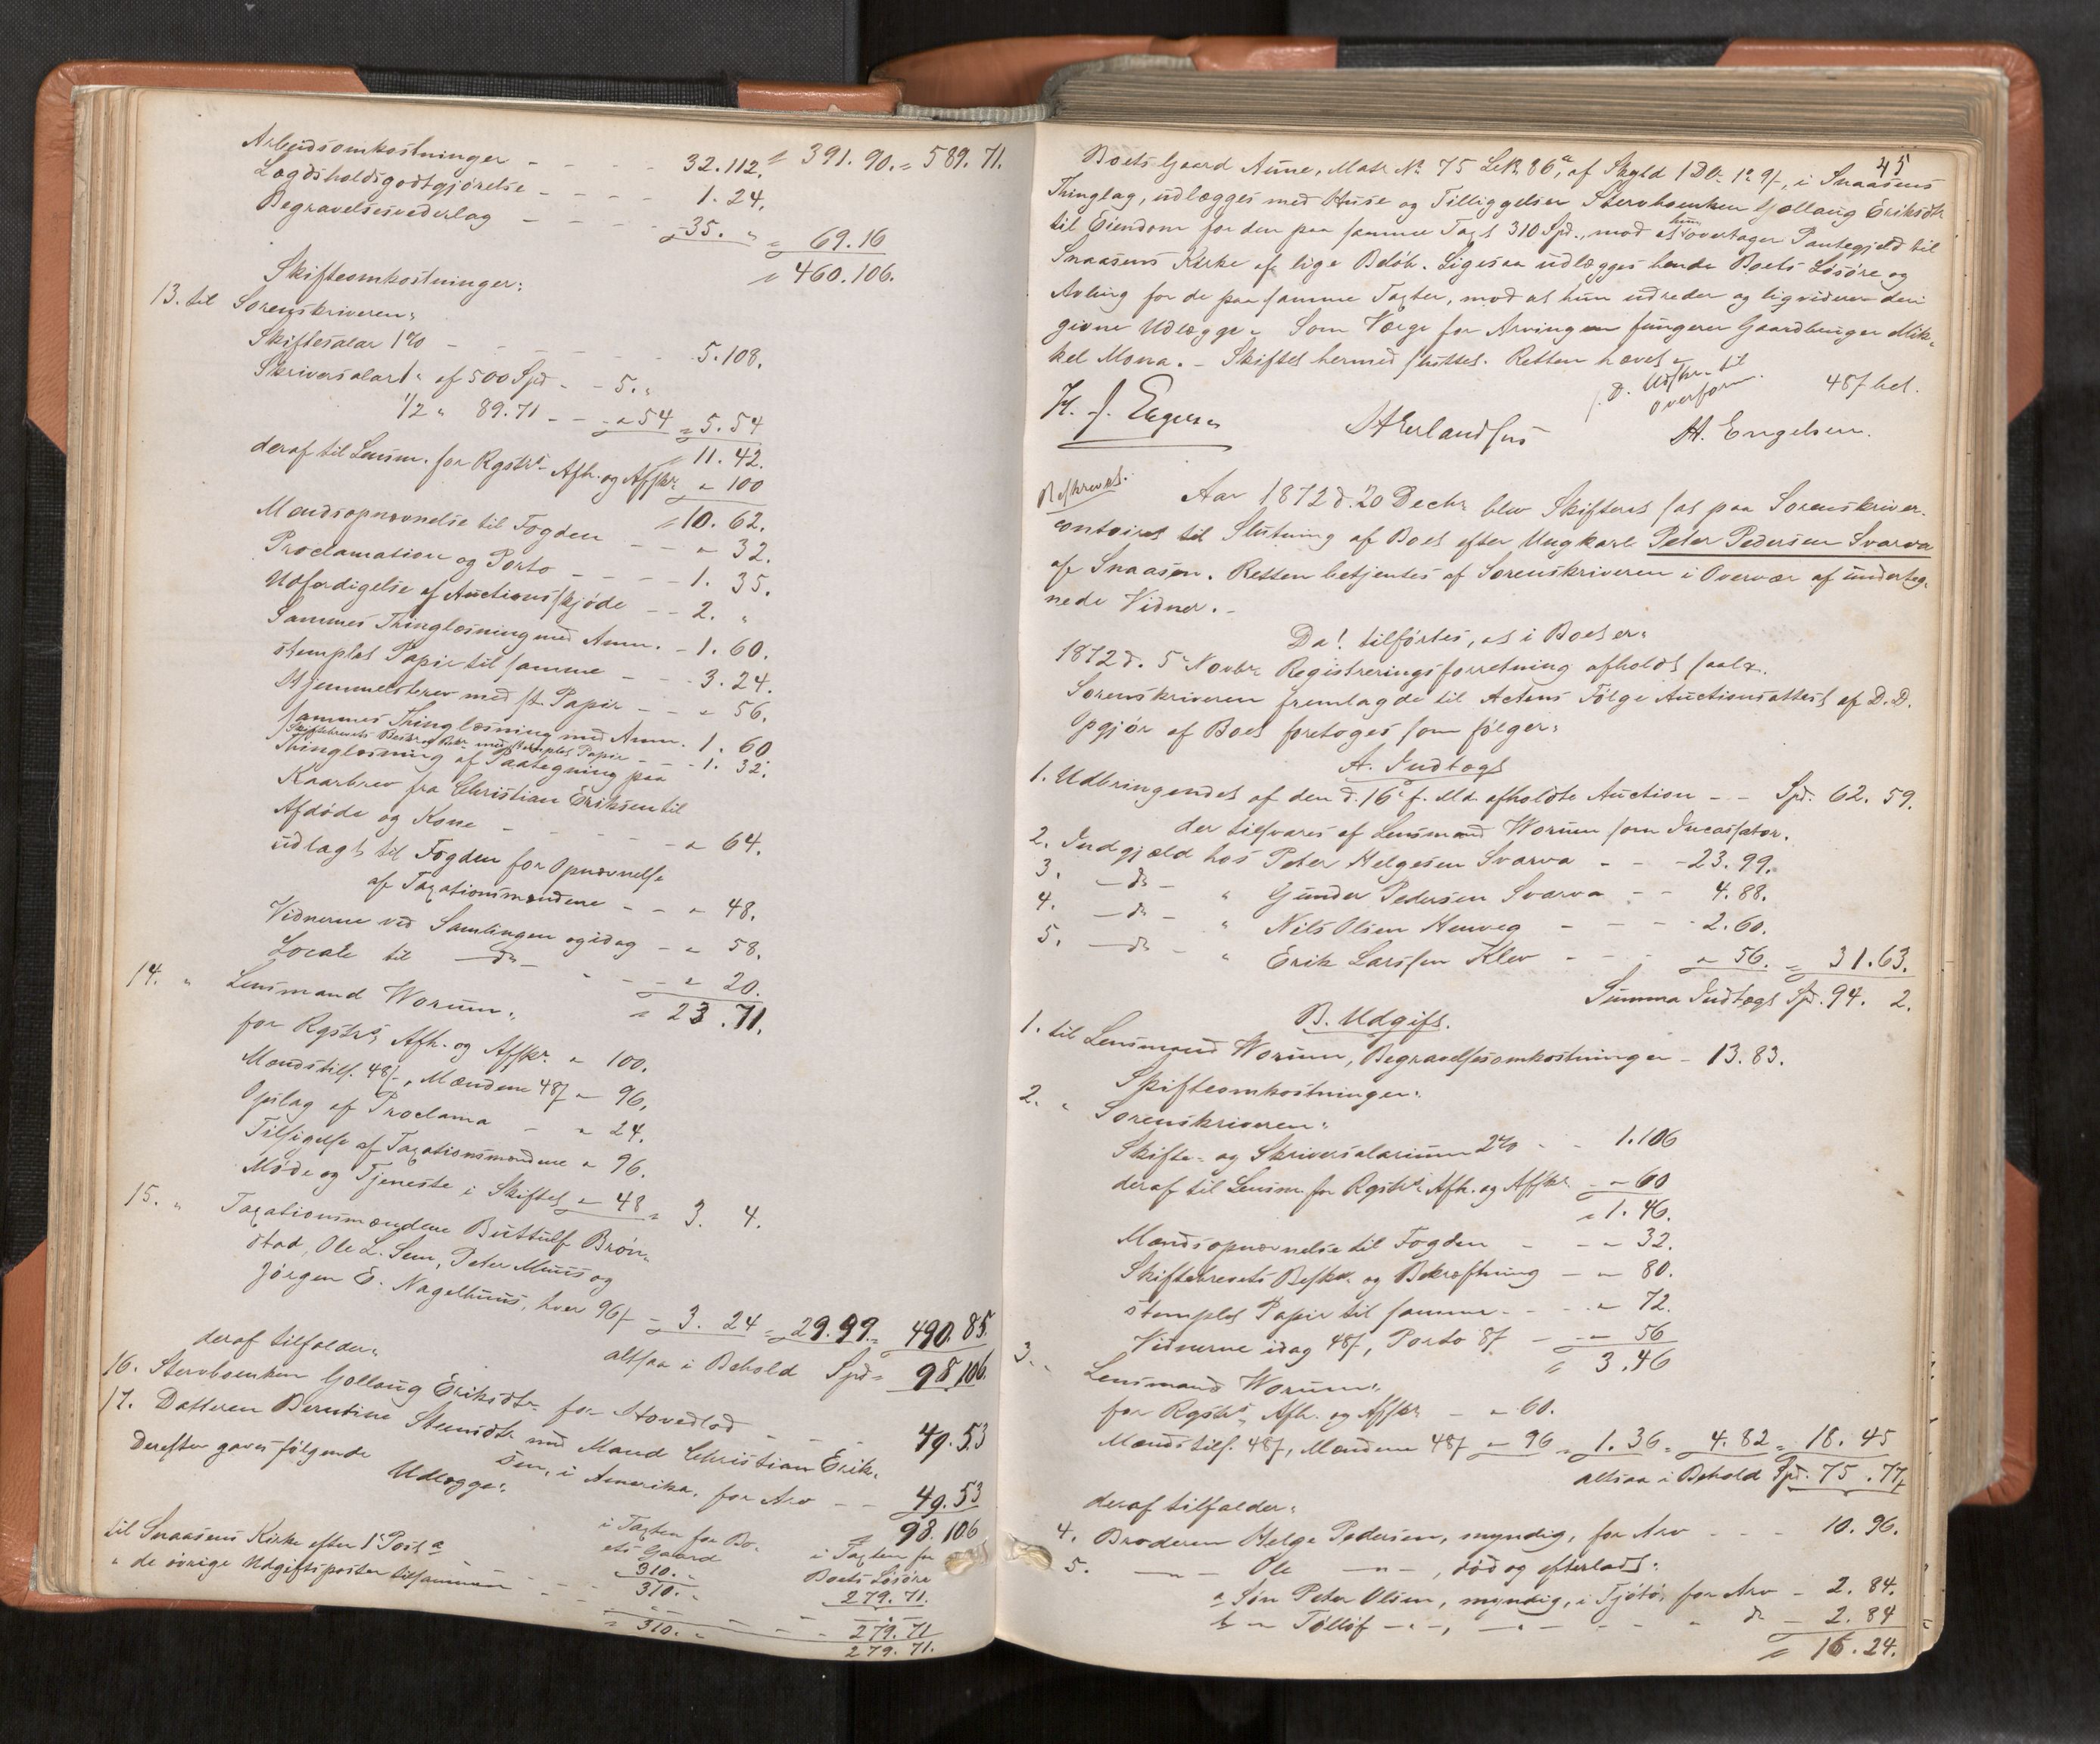 Arbeidsomkostninger - - - - 32.112. " 391. 90. = 589. 71.
Lægdsholdsgodtgjørelse - - - - 1. 24.
Begravelsesvederlag - - - - 35. " = 69. 16
" 460. 106.
Skifteomkostninger:
13. til Sorenskriveren:
Skiftesalær 1% - - - - 5. 108.
Skriversalær 1 " af 500 Spd - - 5. "
1/2 " 89. 71 - - " 54 = 5. 54
" 11. 42.
deraf til Lensm. for Rgstrs Afh. og Afskr. " 100
" 10. 62.
Mændsopnævnelse til Fogden - - " 32.
Proclamation og Porto - - - - 1. 35.
Udfærdigelse af Auctionsskjøde - - 2. "
Sammes Thinglæsning med Anm. - 1. 60.
stemplet Papir til samme - - - 3. 24.
Hjemmelsbrev med st. Papir - - " 56.
sammes Thinglæsning med Anm. 1. 60
Skiftebrevets Beskr. og Bekr. med stemplet Papir - - - 1. 32.
Thinglæsning af Paategning paa
Kaarbrev fra Christian Eriksen til
Afdøde og Kone - - - - - " 64.
udlagt til Fogden for Opnævnelse
af Taxationsmændene - - " 48.
Vidnerne ved Samlingen og idag - " 58.
Locale til - do - - - " 20.
" 23. 71.
14. " Lensmand Worum:
for Rgstrs Afh. og Afskr. " 100.
Mændstils. 48ſ, Mændene 48ſ " 96.
Opslag af Proclama - " 24.
Tilsigelse af Taxationsmændene " 96.
Møde og Tjeneste i Skiftet " 48 = 3. 4.
15. " Taxationsmændene Buttulf Brøn-
stad, Ole L. Sem, Peter Muus og
Jørgen E. Nagelhuus, hver 96ſ = 3. 24 = 29. 99. = 490. 85.
altsaa i Behold Spd = 98. 106.
deraf tilfalder:
16. Stervboenken Gollaug Eriksdtr for Hovedlod - - - 49. 53
17. Datteren Berntine Steensdtr med Mand Christian Erik-
sen, i Amerika, for Arv - - 49. 53
" 98. 106
Derefter gaves følgende
Udlægge:
i Taxten for Bo- i Taxten for
ets Gaard Boets Løsøre
310. " 279. 71.
til Snaasens Kirke efter 1e Post a - - 310. "
" de øvrige Udgiftsposter tilsammen - - - " - - - - 279. 71
" 310. " 279. 71.
45
Boets Gaard Aune, Matr. No 75 Lbr. 86a, af Skyld 1 Dlr. 1 " 9ſ, i Snaasens
Thinglag, udlægges med Huse og Tilliggelser Stervboenken Gollaug Eriksdtr
til Eiendom for den paa samme Taxt 310 Spd., mod at hun overtager Pantegjeld til
Snaasens Kirke af lige Beløb. Ligesaa udlægges hende Boets Løsøre og
Avling for de paa samme Taxter, mod at hun udreder og liqviderer deri
givne Udlægge. Som Værge for Arvingen fungerer Gaardbruger Mik-
kel Mona. - Skiftet hermed sluttet. Retten hævet -
D. Udskr. til 48ſ bet.
Overform.
H. J. Erlandsens H. Engelsen.
Beskrevet.
Aar 1872 d. 20 Decbr blev Skifteret sat paa Sorenskriver-
contoiret til Slutning af Boet efter Ungkarl Peter Pedersen Svarva
af Snaasen. Retten betjentes af Sorenskriveren i Overvær af underteg-
nede Vidner. -
Da! tilførtes, at i Boet er:
1872 d. 5e Novbr Registreringsforretning afholdt saal.
Sorenskriveren fremlagde til Actens Følge Auctionsattest af D. D.
Opgjør af Boet foretoges som følger:
A. Indtægt
1. Udbringendet af den d. 16e f. Md. afholdte Auction - - Spd. 62. 59.
der tilsvares af Lensmand Worum som Incassator.
2. Indgjæld hos Peter Helgesen Svarva - - - 23. 99.
3. - do - " Gunder Pedersen Svarva - - 4. 88.
4. - do - " Nils Olsen Henveg - - - - 2. 60.
5. - do - " Erik Larssen Klev - - - " 56. = 31. 63.
Summa Indtægt Spd. 94. 2.
B. Udgift.
1. til Lensmand Worum, Begravelsesomkostninger - 13. 83.
Skifteomkostninger:
2. " Sorenskriveren:
Skifte- og Skriversalarium 2% - - 1. 106
deraf til Lensm. for Rgstrs Afh. og Afskr. - " 60
" 1. 46.
Mændsopnævnelse til Fogden - - " 32.
Skiftebrevets Beskr. og Bekræftning - " 80.
stemplet Papir til samme - - - " 72.
Vidnerne idag 48ſ, Porto 8ſ - - " 56
" 3. 46
3. " Lensmand Worum:
for Rgstrs Afh. og Afskr. - " 60.
Mændstils. 48ſ, Mændene 48ſ " 96 = 1. 36 = 4. 82 = 18. 45
altsaa i Behold Spd. 75. 77.
deraf tilfalder:
4. Broderen Helge Pedersen, myndig, for Arv - - - 10. 96.
5. - " - Ole - " -, død og efterladt:
a Søn Peter Olsen, myndig, i Tjøtø, for Arv - 2. 84.
b " Tollof - " -, - " - - - " do - 2. 84
" 16. 24.